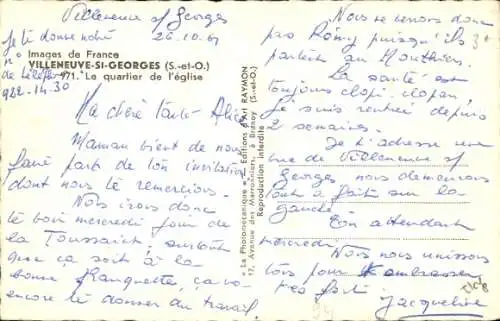 Villeneuve s/ Georges
26.10.61
Je te donne notre
n° de téléphone
922-14.30
Images de France
VILLENEUVE-SI-GEORGES (S.-et-O.)
971. Le quartier de l'église
Ma chère tante Alice
Maman vient de nous
faire part de ton invitation
dont nous te remercions.
Nous irons donc
te voir mercredi jour de
la Toussaint, surtout
que ce soit à la
bonne franquette, ça va
encore te donner du travail.
« La Photomécanique » - Editions d'Art RAYMON
17, Avenue des Marronniers, à Brunoy (S.-et-O.)
Reproduction interdite
Nous ne verrons donc
pas Rémy puisqu'ils
partent au
La santé est
toujours clopi-clopan,
je suis rentrée depuis
2 semaines.
Je t'adresse une
vue de Villeneuve s/
Georges nous demeurons
tout à fait sur la
gauche.
En attendant
mercredi
Nous nous unissons
tous pour t'embrasser
très fort.
Jacqueline